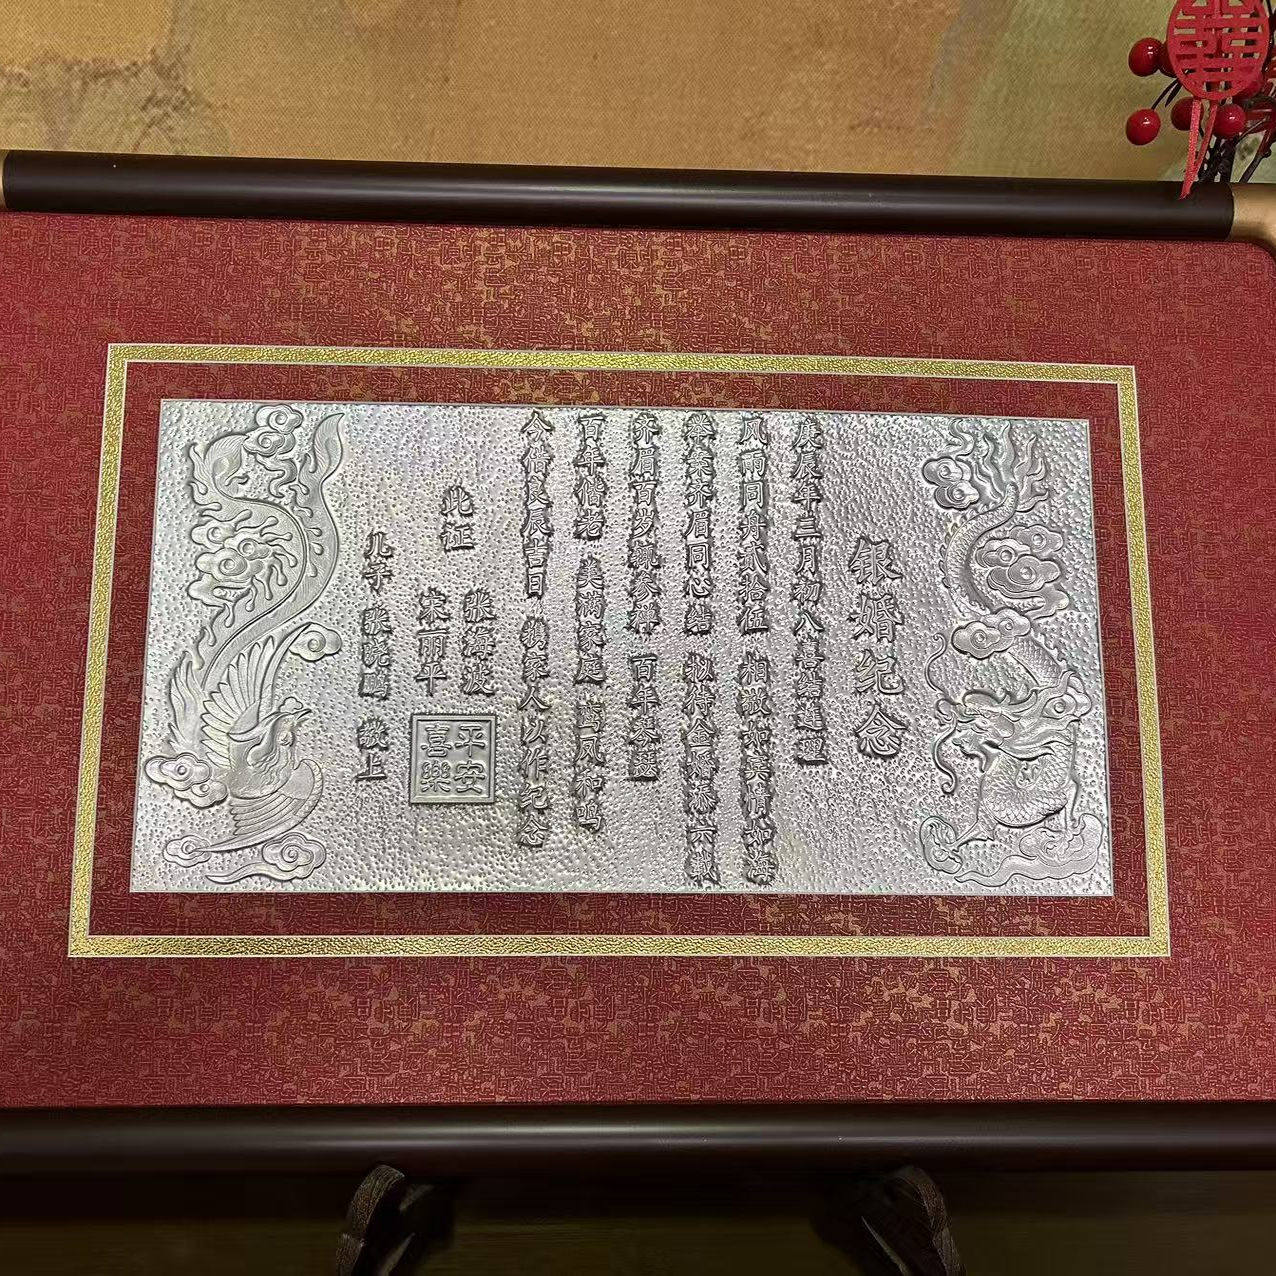 银婚纪念
庚辰年三月初八喜结连理
风雨同舟贰拾伍 相敬如宾情如海
齐眉同心结 待金婚添
齐眉百岁 百年琴瑟
百年偕老 美满家庭 鸾凤和鸣
今借良辰吉日 携家人以作纪念
此证
张海波
宋丽平
平安
喜樂
儿子 张晓 敬上
囍